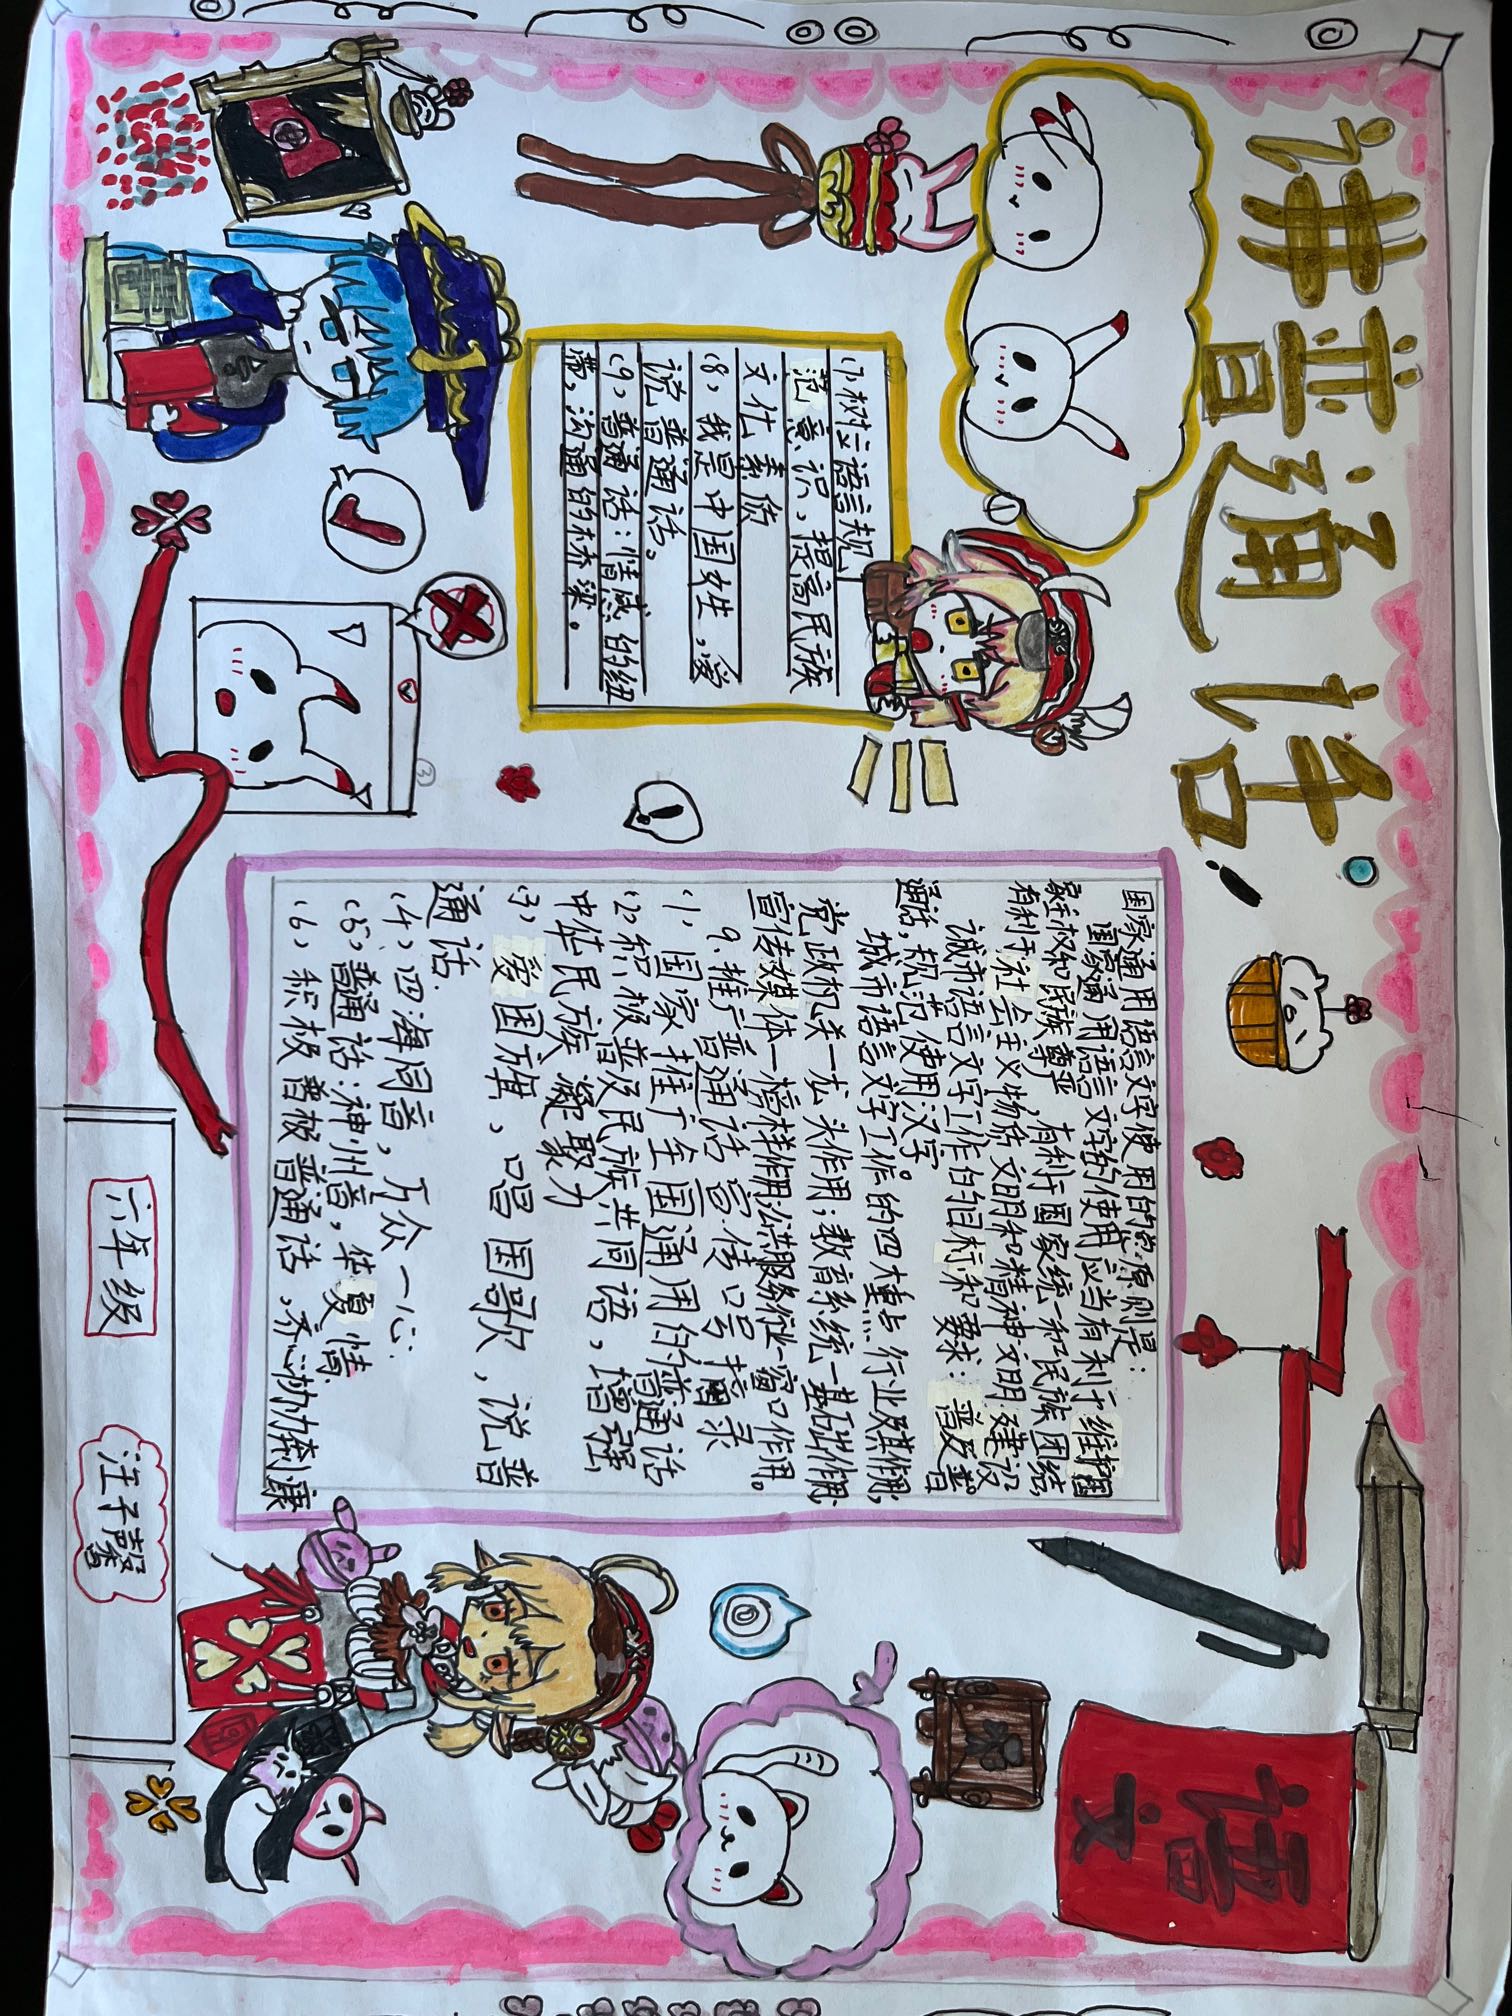 讲普通话
国家通用语言文字使用的总原则是:
国家通用语言文字的使用应当有利于维护国
家主权和民族尊严,有利于国家统一和民族团结
有利于社会主义物质文明和精神文明建设
诚市语言文字工作的目标和要求:普及普
通话,规范使用汉字。
城市语言文字工作的四个重点行业及其作用:
党政机关一龙头作用;教育系统一基础作用;
宣传媒体一榜样作用;公共服务行业一窗口作用。
9、推广普通话宣传口号摘录
(1)国家推广全国通用的普通话
(2)积极普及民族共同语,增强
中华民族凝聚力
(3)爱国旗,唱国歌,说普
通话.
(4)、四海同音,万众一心.
(5)、普通话:神州音,华夏情.
(6)、积极普极普通话,齐心协力奔小康
(7)树立语言规
范意识,提高民族
文仕素质
(8)、我是中国女生,爱
说普通话。
(9)、普通话:情感的纽
带,沟通的桥梁。
语
文
六年级
汪子馨